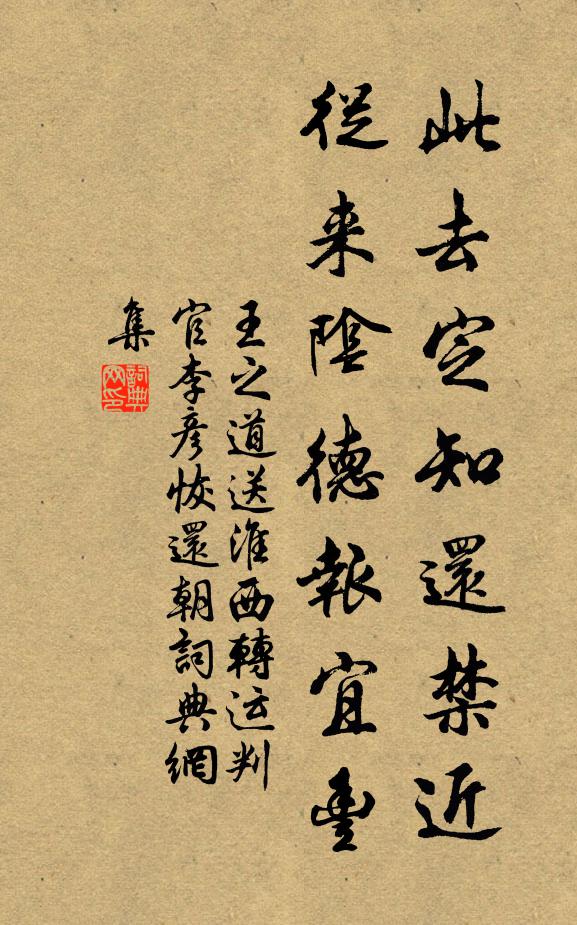 此去定知還禁近
從来陰德報宜豐
王之道送淮西轉运判
官李彦恢還朝詞典網
集
詞典
网印